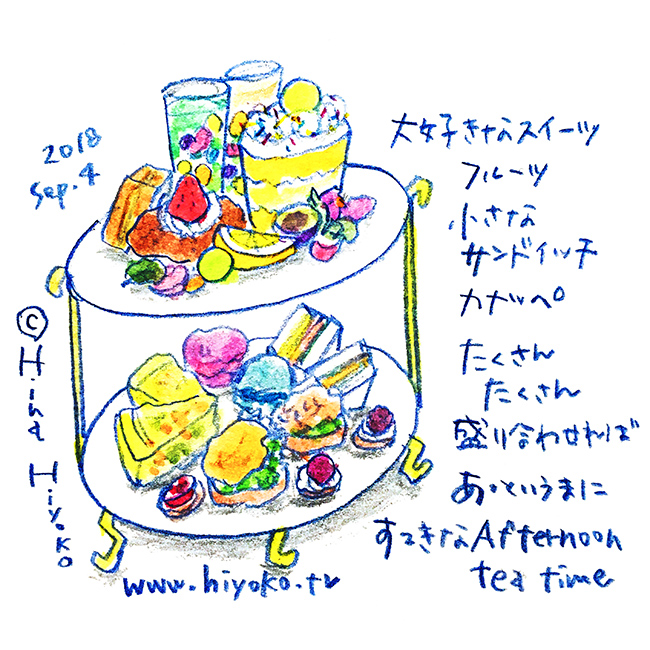 2018
Sep. 4
大好きなスイーツ
フルーツ
小さな
サンドイッチ
カナッペ
たくさん
たくさん
盛り合わせれば
あっというまに
すてきなAfternoon
tea time
© Hina Hiyoko
www.hiyoko.tv